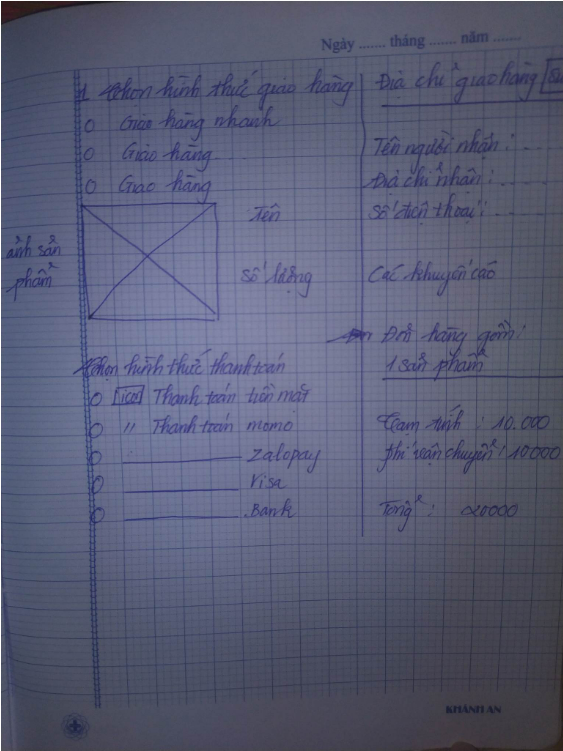 Ngày ....... tháng ....... năm .......
1 Chọn hình thức giao hàng
O Giao hàng nhanh
O Giao hàng
O Giao hàng
ảnh sản
phẩm
Tên
Số lượng
Chọn hình thức thanh toán
O icon Thanh toán tiền mặt
O " Thanh toán momo
O zalopay
O Visa
O Bank
Địa chỉ giao hàng
Tên người nhận : . . . .
Địa chỉ nhận : . . . .
Số điện thoại : . . . .
Các khuyến cáo
Đơn hàng gồm :
1 sản phẩm
Tạm tính : 10.000
phí vận chuyển : 10000
Tổng : 20000
KHÁNH AN